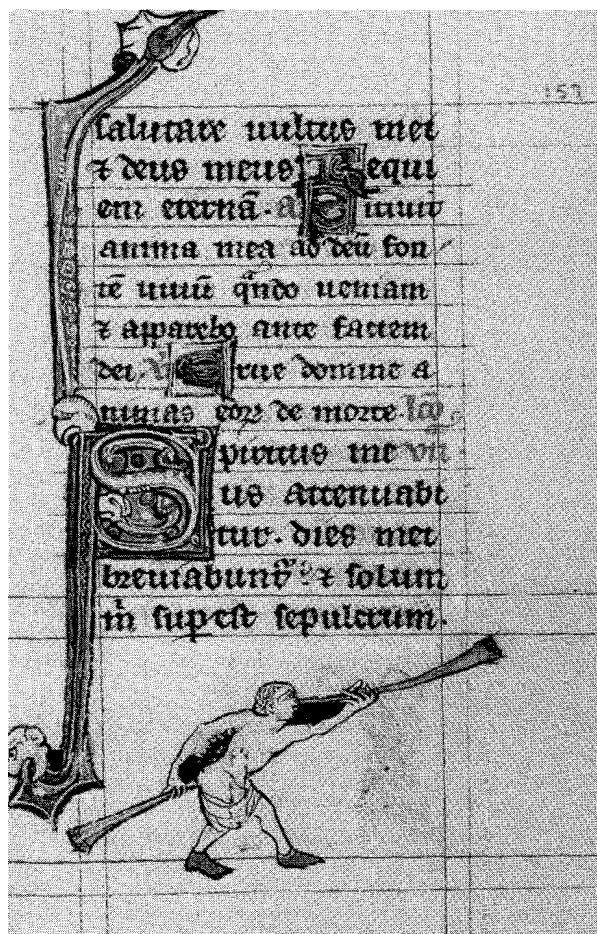 157
salutare uultus mei
⁊ deus meus. Requi
em eternā. a Sitiuit
anima mea ad deū fon
tē uiuū qn̄do ueniam
⁊ apparebo ante faciem
dei. Erue domine a
nimas eoꝝ de morte. lcō
Spiritus me vii
us attenuabi
tur. dies mei
breuiabunt᷑ ⁊ solum
m̄ superest sepulcrum.